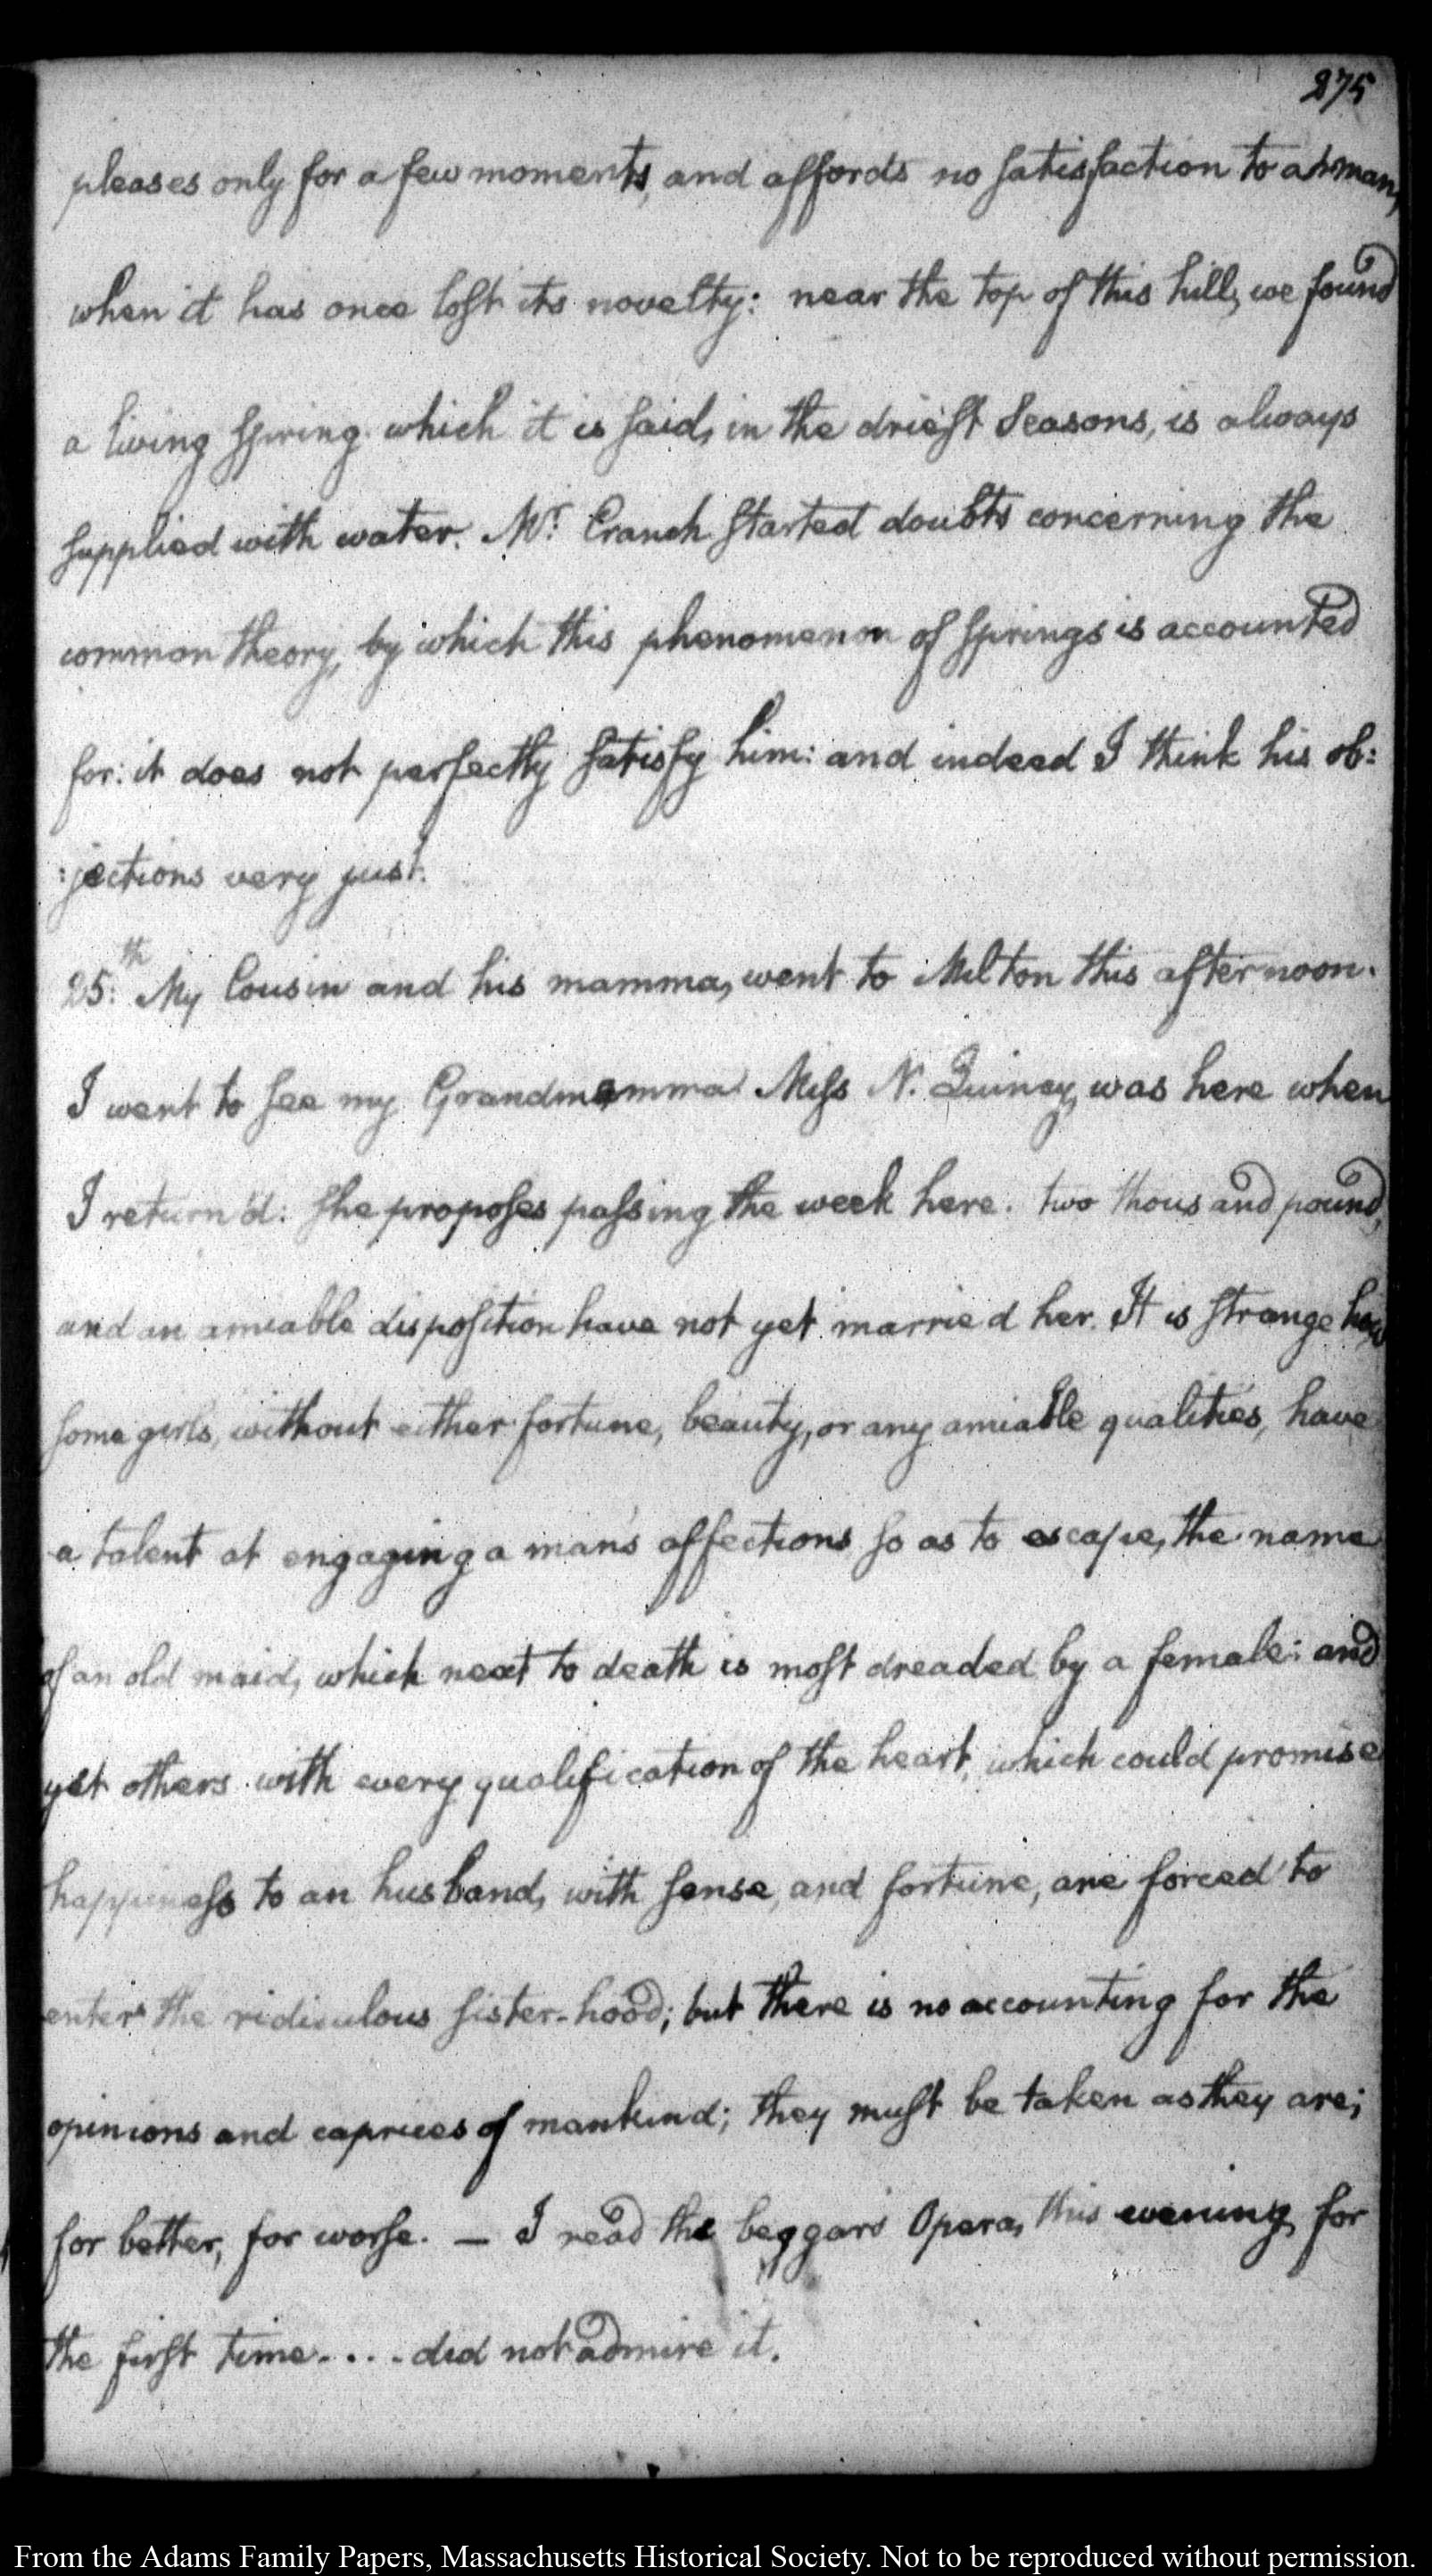 275
pleases only for a few moments, and affords no satisfaction to a man,
when it has once lost its novelty: near the top of this hill, we found
a living spring which it is said, in the driest Seasons, is always
supplied with water. Mr. Cranch started doubts concerning the
common theory, by which this phenomenon of springs is accounted
for: it does not perfectly satisfy him: and indeed I think his ob:
:jections very just.
25:th My Cousin and his mamma, went to Milton this afternoon.
I went to see my Grandmamma Miss N. Quincy, was here when
I return'd: she proposes passing the week here. two thousand pound,
and an amiable disposition have not yet married her. It is strange how
some girls, without either fortune, beauty, or any amiable qualities, have
a talent at engaging a man's affections so as to escape, the name
of an old maid, which next to death is most dreaded by a female: and
yet others with every qualification of the heart, which could promise
happiness to an husband, with sense, and fortune, are forced to
enter the ridiculous sister-hood; but there is no accounting for the
opinions and caprices of mankind; they must be taken as they are;
for better, for worse. — I read the beggar's Opera, this evening, for
the first time. . . . did not admire it.
From the Adams Family Papers, Massachusetts Historical Society. Not to be reproduced without permission.